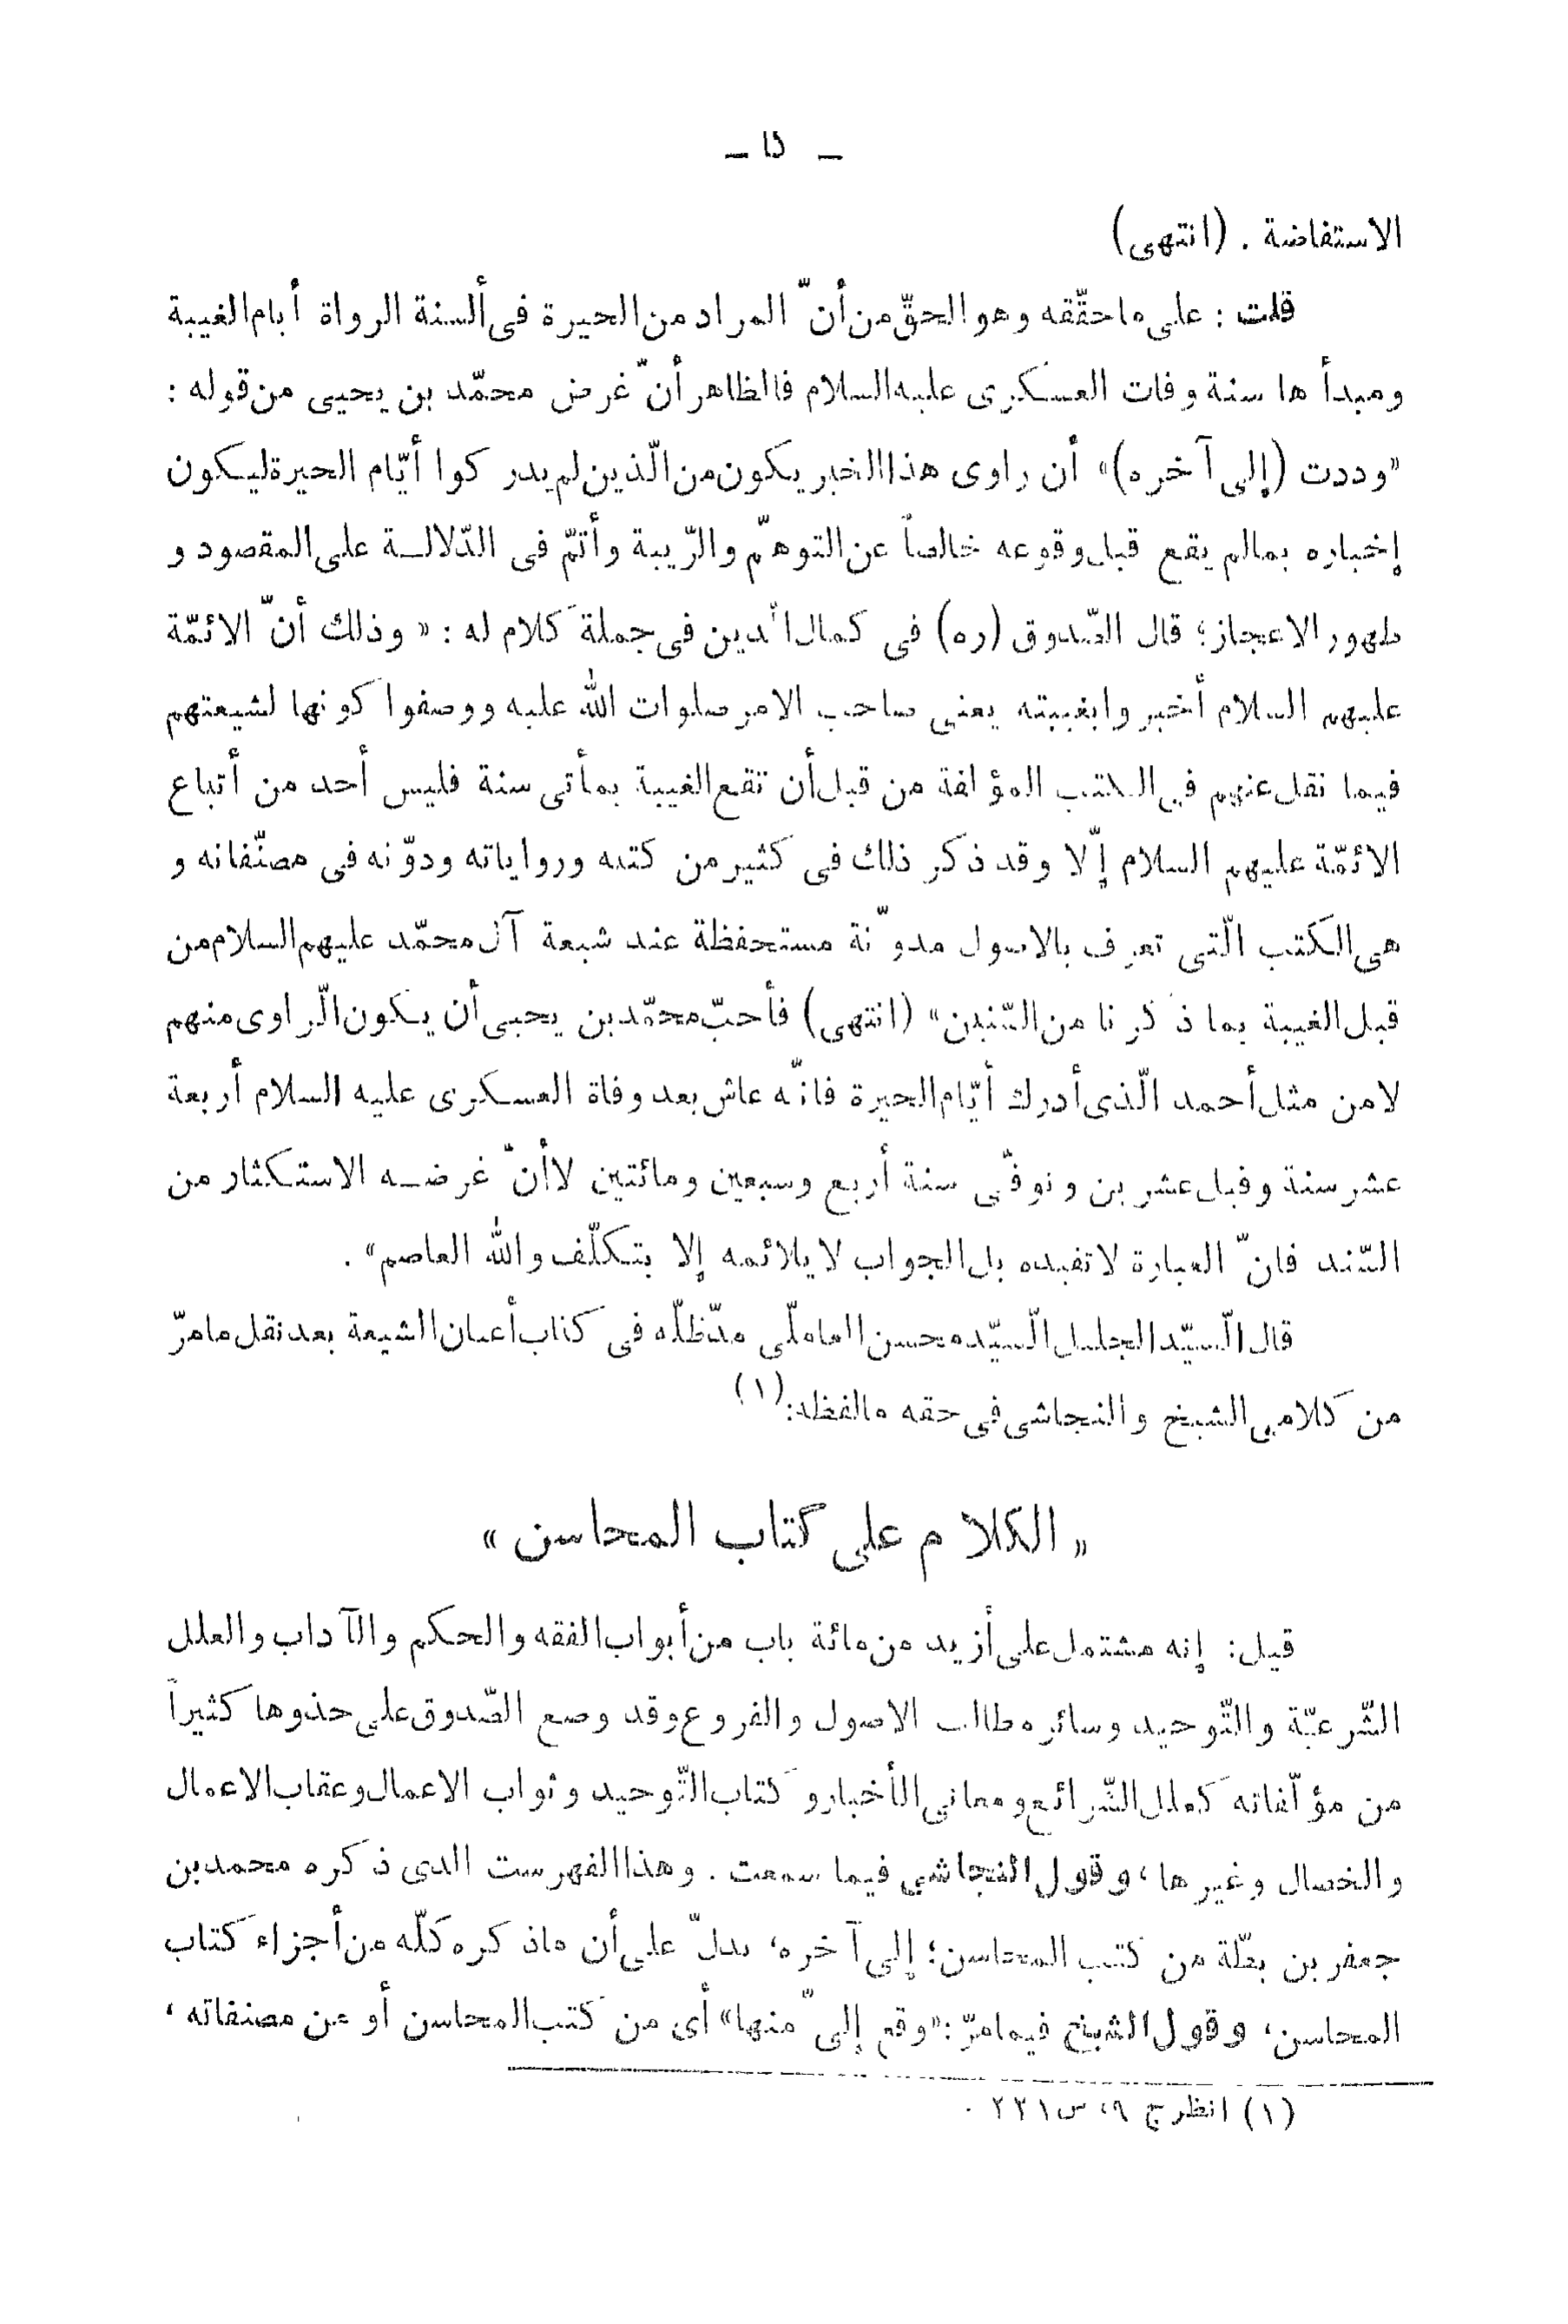 – كا –
الاستفاضة . (انتهى)
قلت : على ماحقّقه وهو الحقّ من أنّ المراد من الحيرة فى ألسنة الرواة أيام الغيبة
ومبدأ ها سنة وفات العسكرى عليه السلام فالظاهر أنّ غرض محمّد بن يحيى من قوله :
«وددت (إلى آخره)» أن راوى هذا الخبر يكون من الّذين لم يدر كوا أيّام الحيرة ليكون
إخباره بمالم يقع قبل وقوعه خالصاً عن التوهمّ والرّيبة وأتمّ فى الدّلالــة على المقصود و
ظهور الاعجاز؛ قال الصّدوق (ره) فى كمال الدين فى جملة كلام له : « وذلك أنّ الائمّة
عليهم السلام أخبر وابغيبته يعنى صاحب الامر صلوات الله عليه ووصفوا كونها لشيعتهم
فيما نقل عنهم فى الكتب المؤلفة من قبل أن تقع الغيبة بمأتى سنة فليس أحد من أتباع
الائمّة عليهم السلام إلّا وقد ذكر ذلك فى كثير من كتبه ورواياته ودوّنه فى مصنّفاته و
هى الكتب الّتى تعرف بالاصول مدوّنة مستحفظة عند شيعة آل محمّد عليهم السلام من
قبل الغيبة بما ذكرنا من السّنين» (انتهى) فأحبّ محمّد بن يحيى أن يكون الّراوى منهم
لامن مثل أحمد الّذى أدرك أيّام الحيرة فانّه عاش بعد وفاة العسكرى عليه السلام أربعة
عشر سنة وقيل عشرين وتوفّى سنة أربع وسبعين ومائتين لاأنّ غرضــه الاستكثار من
السّند فانّ العبارة لاتفيده بل الجواب لايلائمه إلا بتكلّف والله العاصم» .
قال الّسيّد الجليل الّسيّد محسن العاملّى مدّظلّه فى كتاب أعيان الشيعة بعد نقل مامرّ
من كلامى الشيخ والنجاشى فى حقه مالفظه:(١)
« الكلام على كتاب المحاسن »
قيل: إنه مشتمل على أزيد من مائة باب من أبواب الفقه والحكم والآداب والعلل
الشّرعيّة والتّوحيد وسائر مطالب الاصول والفروع وقد وضع الصّدوق على حذوها كثيراً
من مؤلّفاته كعلل الشّرائع ومعانى الأخبار و كتاب التّوحيد وثواب الاعمال وعقاب الاعمال
والخصال وغيرها، وقول النجاشى فيما سمعت . وهذا الفهرست الذى ذكره محمد بن
جعفر بن بطّة من كتب المحاسن؛ إلى آخره، يدلّ على أن ماذكره كلّه من أجزاء كتاب
المحاسن، وقول الشيخ فيمامرّ :«وقع إلىّ منها» أى من كتب المحاسن أو من مصنفاته ،
(١) انظر ج ٩، ص ٢٣١ .